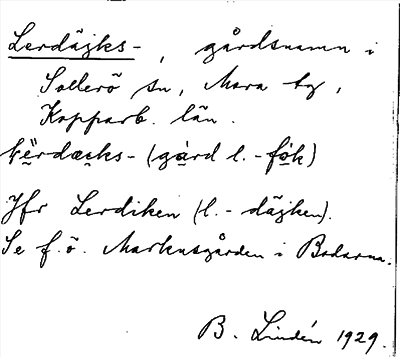 Lerdäjks-, gårdsnamn i
Sollerö sn, Mora tg,
Kopparb. län.
(gård l. -fok)
Jfr Lerdiken (l. -däjken).
Se f.ö. Markusgården i Bodarna.
B. Lindén 1929.